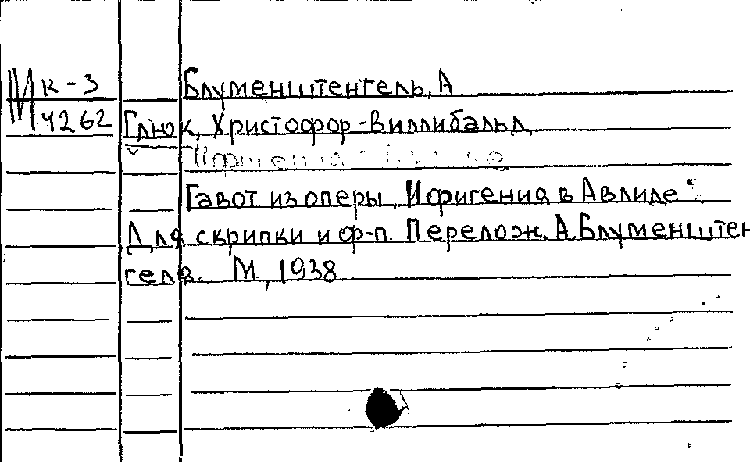 МК-3 Блуменштенгель, А
М 4262 Глюк, Христофор-Виллибальд
Гавот из оперы „Ифигения в Авлиде“.
Для скрипки и ф-п. Перелож. А Блуменштен
геля. М, 1938